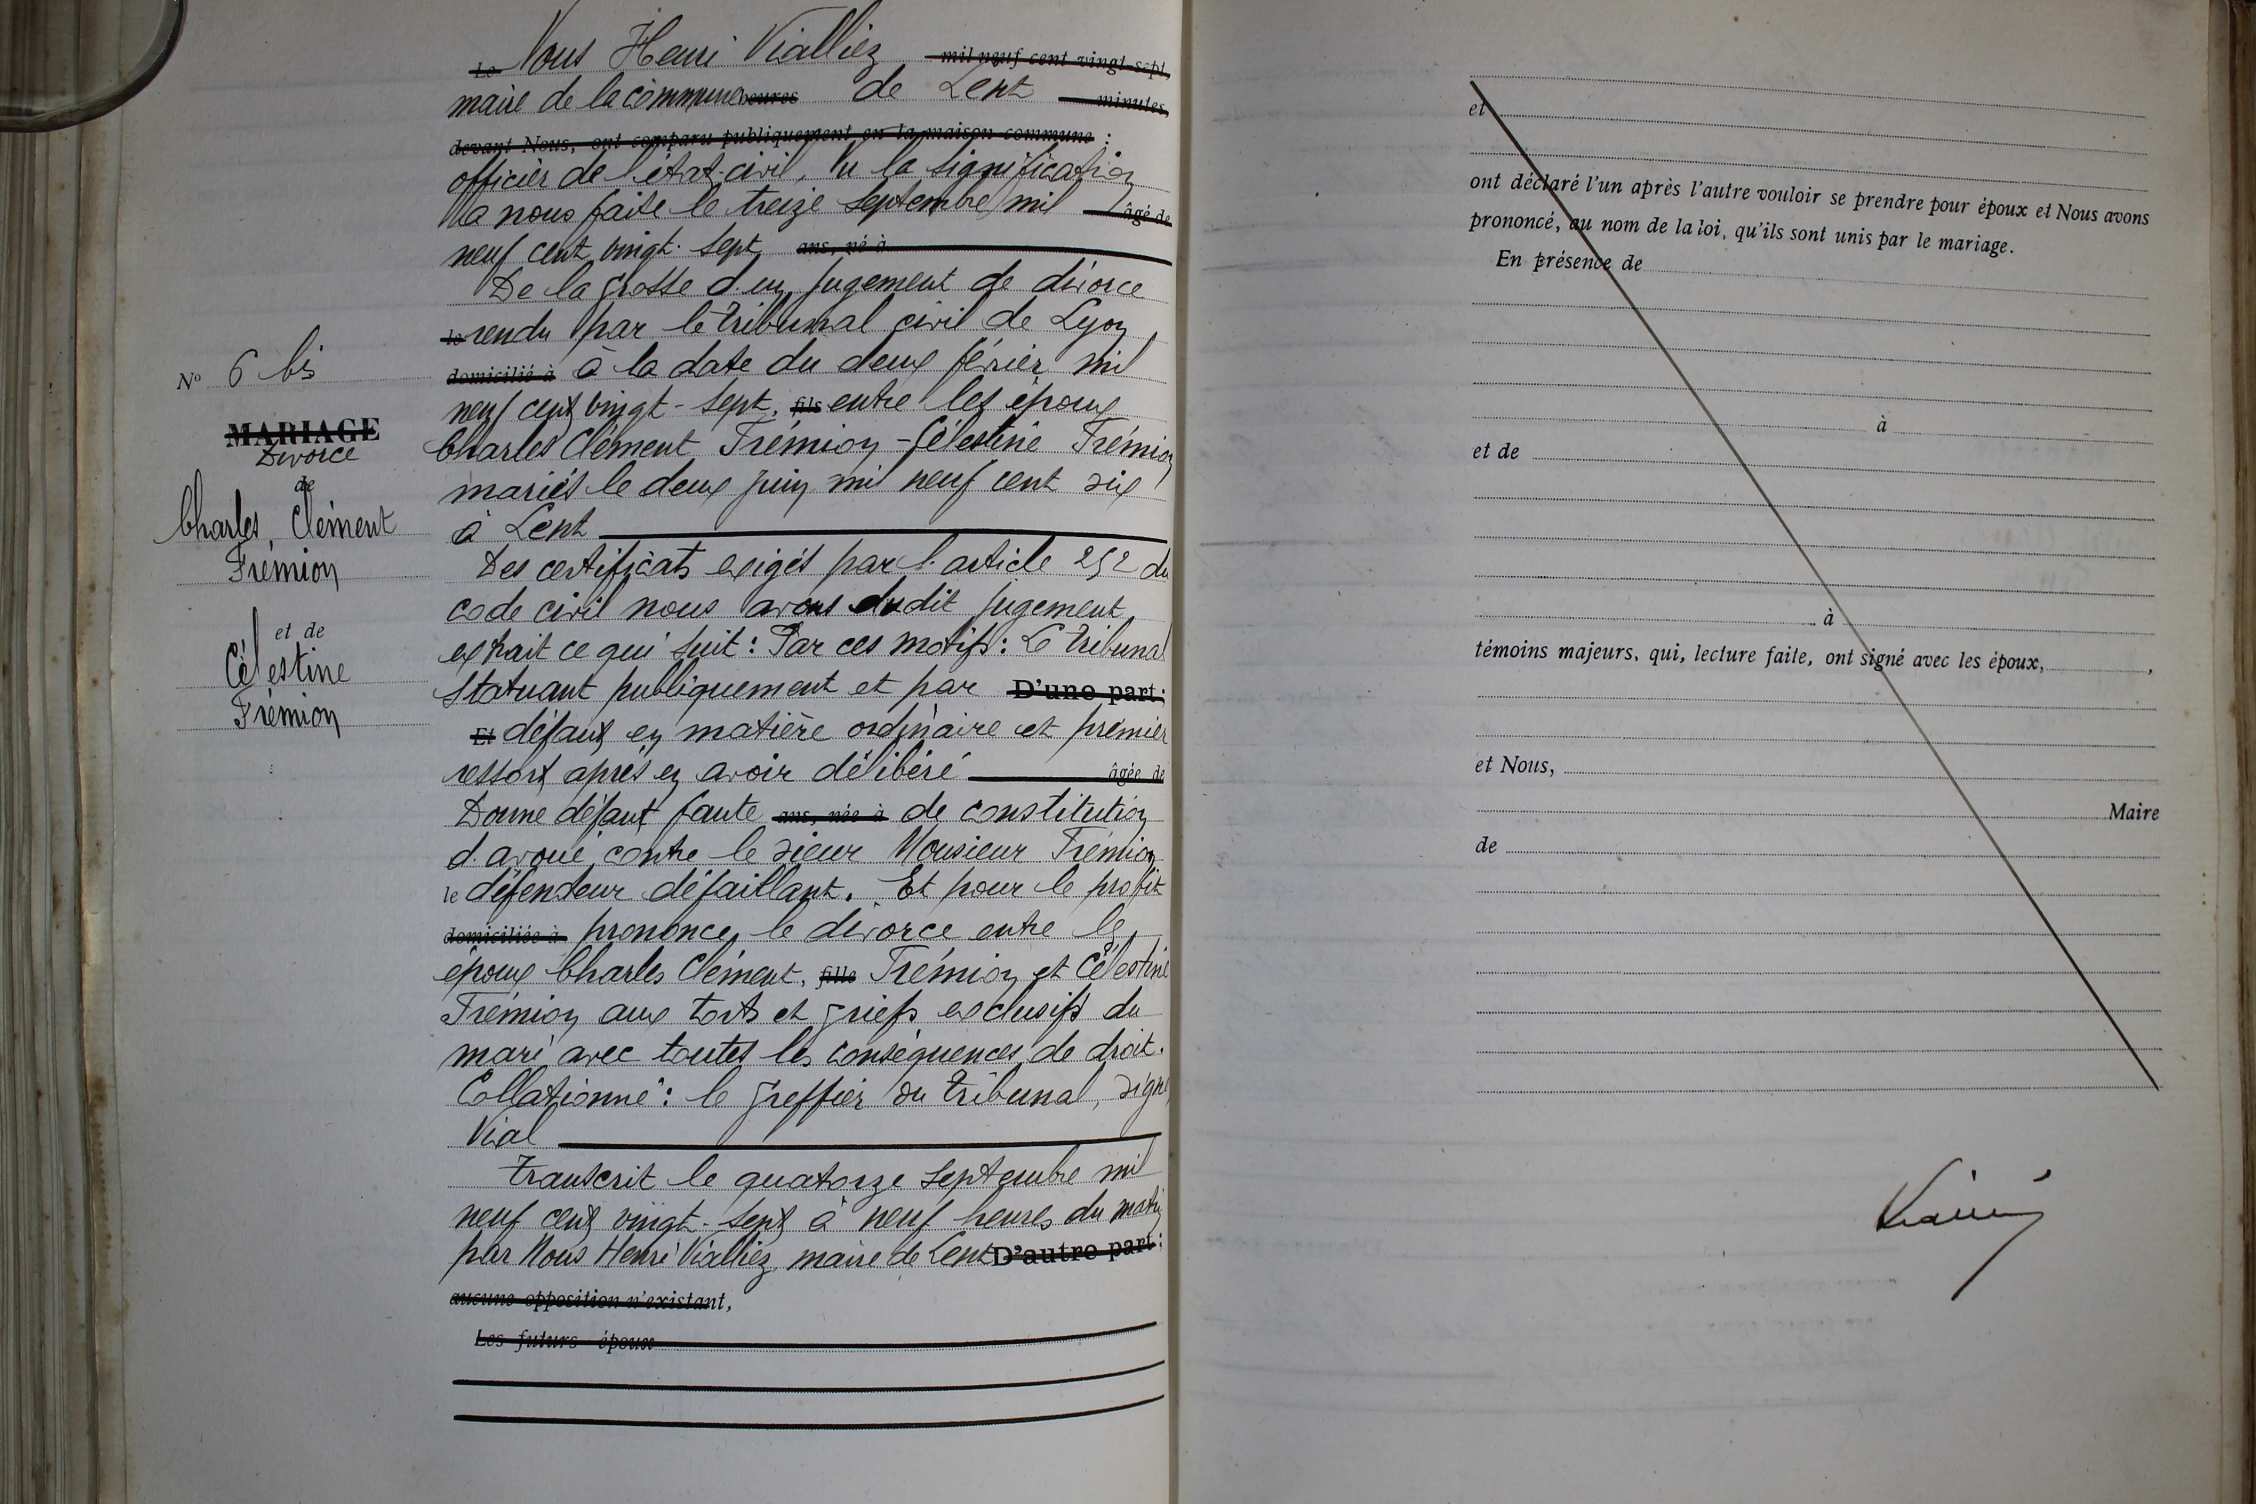 Le Nous Henri Vialliez mil neuf cent vingt-sept,
maire de la commune heures de Lent minutes,
devant Nous, ont comparu publiquement en la maison commune :
officier de l'état-civil, Vu la signification
à nous faite le treize septembre mil âgé de
neuf cent vingt-sept ans, né à
De la grosse d'un jugement de divorce
le rendu par le tribunal civil de Lyon
domicilié à à la date du deux février mil
neuf cent vingt-sept, fils entre les époux
Charles Clément Frémion - Célestine Frémion
mariés le deux juin mil neuf cent six
à Lent
Des certificats exigés par l'article 252 du
code civil nous avons dudit jugement
extrait ce qui suit : Par ces motifs : Le tribunal
statuant publiquement et par D'une part ;
Et défaut en matière ordinaire et premier
ressort après en avoir délibéré âgée de
Donne défaut faute ans, née à de constitution
d'avoué contre le sieur Monsieur Frémion
le défendeur défaillant. Et pour le profit
domiciliée à prononce le divorce entre les
époux Charles Clément, fille Frémion et Célestine
Frémion aux torts et griefs exclusifs du
mari avec toutes les conséquences de droit.
Collationné : le greffier du tribunal, signé
Vial
Transcrit le quatorze septembre mil
neuf cent vingt-sept à neuf heures du matin
par Nous Henri Vialliez maire de Lent D'autre part :
aucune opposition n'existant,
Les futurs époux
N° 6 bis
MARIAGE
Divorce
de
Charles, Clément
Frémion
et de
Célestine
Frémion
et
ont déclaré l'un après l'autre vouloir se prendre pour époux et Nous avons
prononcé, au nom de la loi, qu'ils sont unis par le mariage.
En présence de
à
et de
à
témoins majeurs, qui, lecture faite, ont signé avec les époux, ,
et Nous,
Maire
de